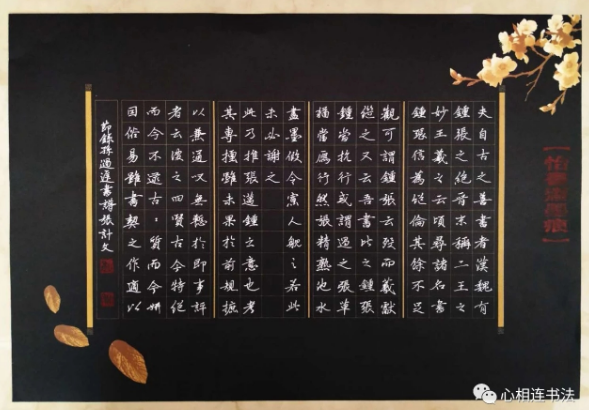 夫自古之善書者漢魏有
鍾張之絕晉末稱二王之
妙王羲之云頃尋諸名書
鍾張信為絕倫其餘不足
觀可謂鍾張云歿而羲獻
繼之又云吾書比之鍾張
鍾當抗行或謂過之張草
猶當雁行然張精熟池水
盡墨假令寡人耽之若此
未必謝之
此乃推張邁鍾之意也考
其專擅雖未果於前規摭
以兼通故無慙於即事評
者云彼之四賢古今特絕
而今不逮古〻質而今妍
因俗易雖書契之作適以
節錄孫過庭書譜張計文
心相连书法